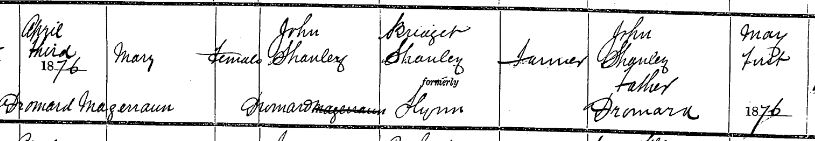 April John Bridget John May
third Mary Female Shanley Shanley Farmer Shanley First
1876 formerly Father
Dromard Magerraun Dromard Magerraun Flynn Dromard 1876